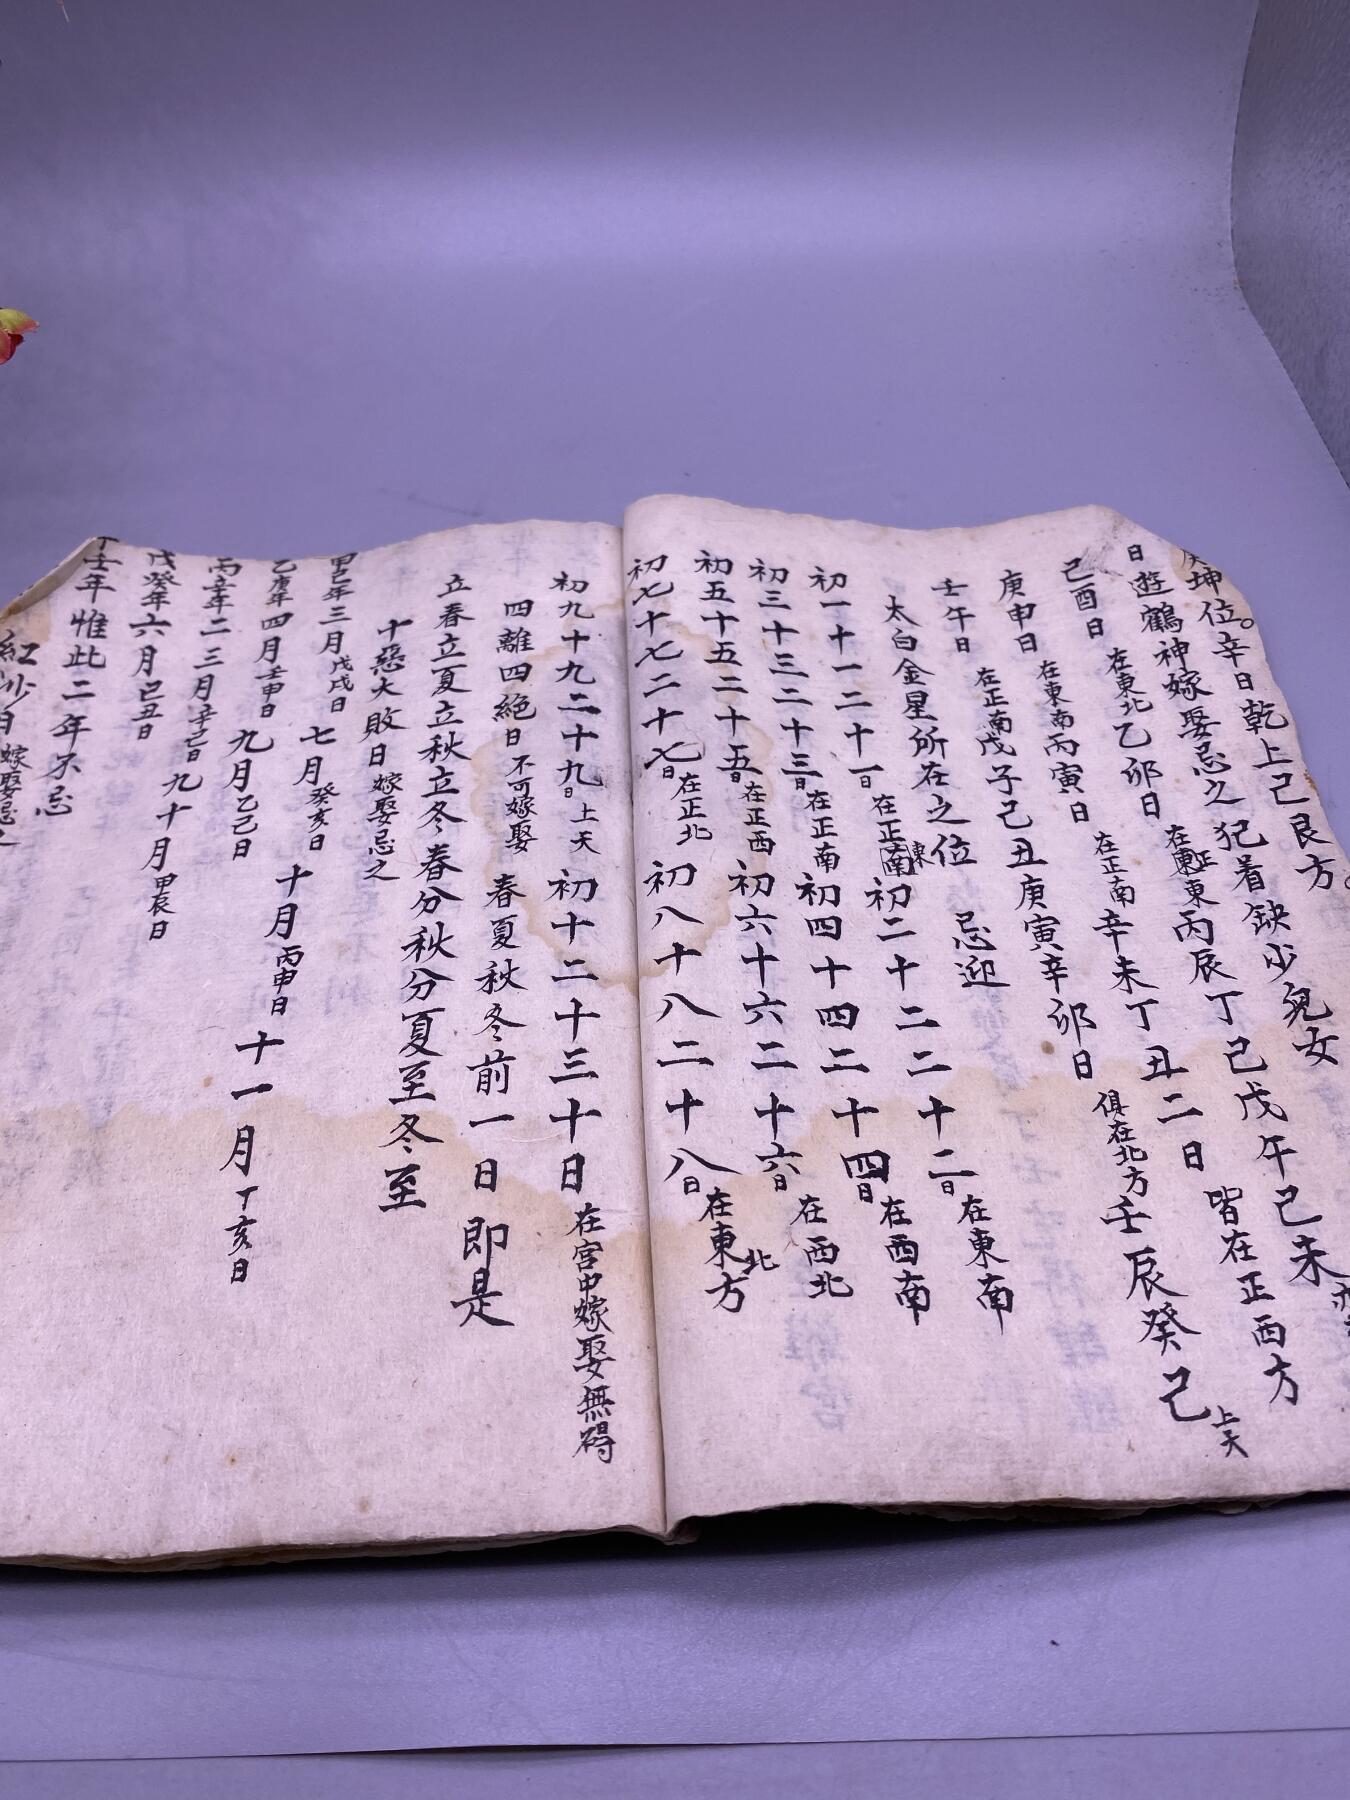 坤位。辛日乾上己艮方。
日遊鶴神嫁娶忌之犯着缺少兒女
己酉日在東北乙卯日在正東丙辰丁己戊午己未
庚申日在東南丙寅日在正南辛未丁丑二日皆在正西方
壬午日在正南戊子己丑庚寅辛卯日俱在北方壬辰癸己上天
太白金星所在之位忌迎
初一十一二十一日在正東初二十二二十二日在東南
初三十三二十三日在正南初四十四二十四日在西南
初五十五二十五日在正西初六十六二十六日在西北
初七十七二十七日在正北初八十八二十八日在東北方
初九十九二十九日上天初十二十三十日在宮中嫁娶無碍
四離四絕日不可嫁娶春夏秋冬前一日即是
立春立夏立秋立冬春分秋分夏至冬至
十惡大敗日嫁娶忌之
甲己年三月戊戌日七月癸亥日十月丙申日十一月丁亥日
乙庚年四月壬申日九月乙己日
丙辛年二三月辛己日九十月甲辰日
戊癸年六月己丑日
丁壬年惟此二年不忌
紅沙日嫁娶忌之